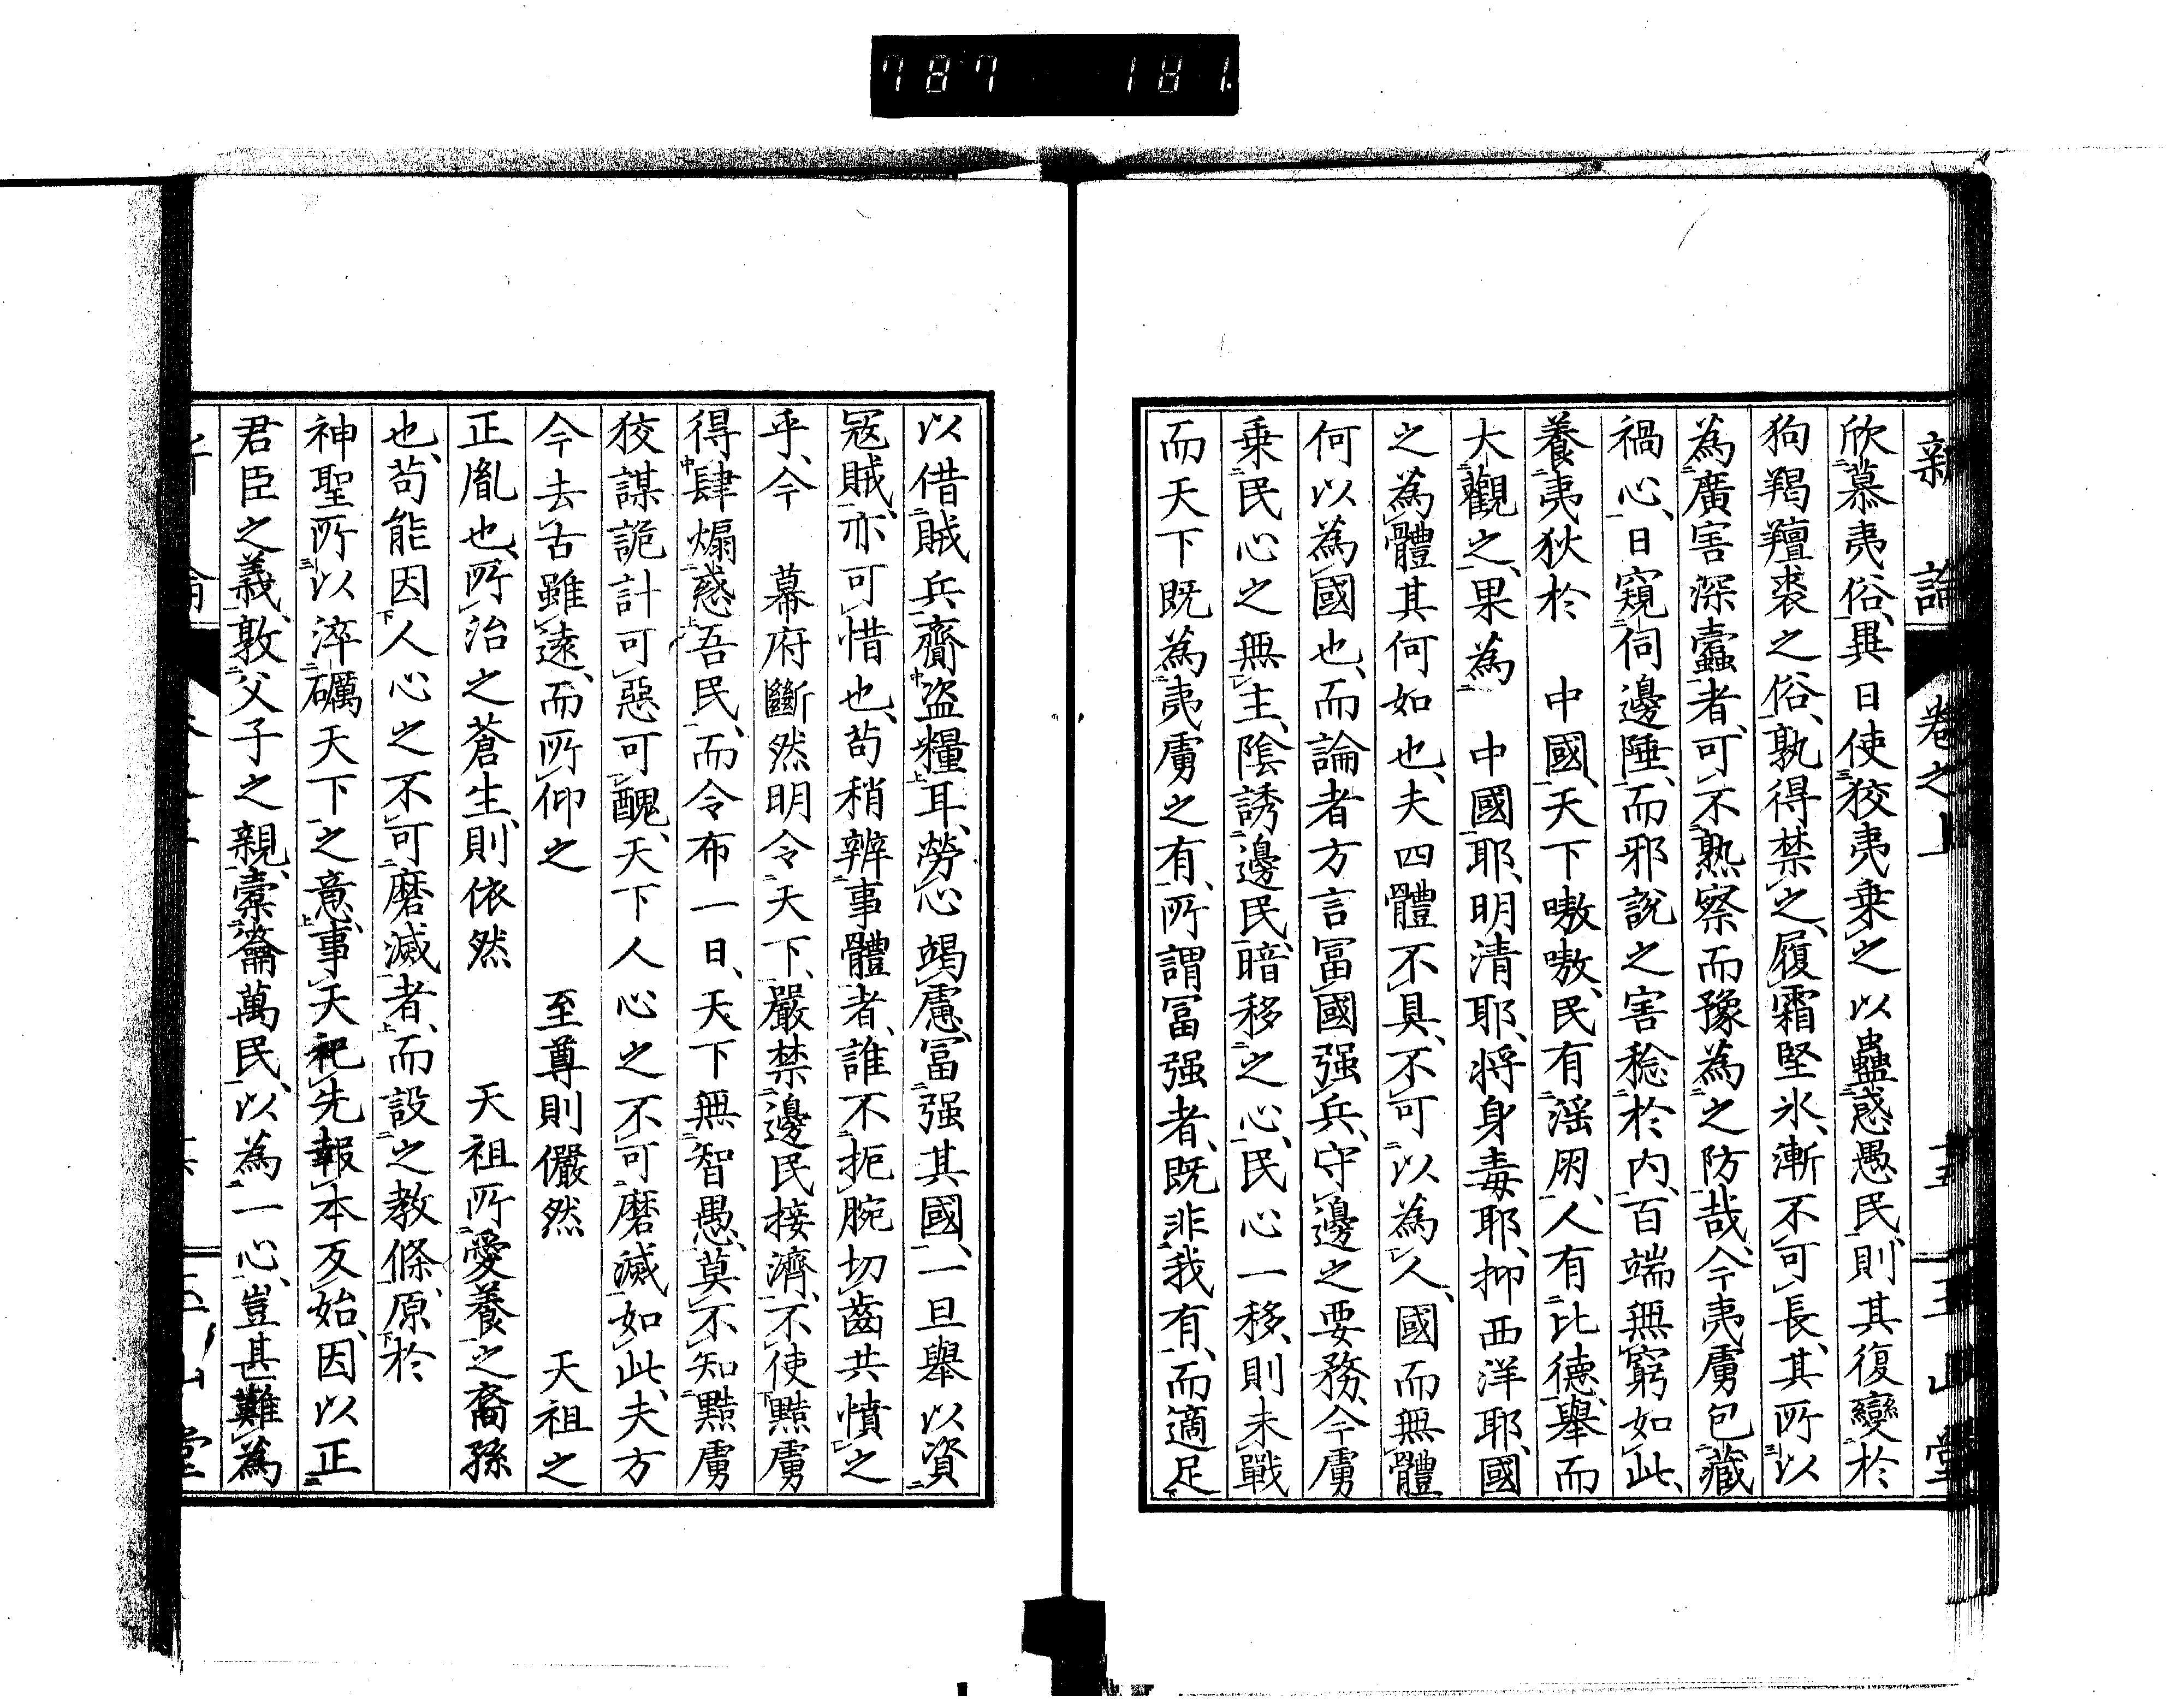 787 181.
新論 卷之上 玉山堂
欣慕夷俗、異日使狡夷乘之以蠱惑愚民、則其復變於
狗羯羶裘之俗、孰得禁之、履霜堅氷、漸不可長、其所以
為廣害深蠹者、可不熟察而豫為之防哉、今夷虜包藏
禍心、日窺伺邊陲、而邪說之害稔於內、百端無窮如此、
養夷狄於　中國、天下嗷嗷、民有淫朋、人有比德、舉而
大觀之、果為　中國耶、明清耶、將身毒耶、抑西洋耶、國
之為體其何如也、夫四體不具、不可以為人、國而無體
何以為國也、而論者方言冨國强兵、守邊之要務、今虜
乗民心之無主、陰誘邊民、暗移之心、民心一移、則未戰
而天下既為夷虜之有、所謂冨强者、既非我有、而適足
以借賊兵、齎盜糧耳、勞心竭慮、冨强其國、一旦舉以資
寇賊、亦可惜也、苟稍辨事體者、誰不扼腕切齒共憤之
乎、今　幕府斷然明令天下、嚴禁邊民接濟、不使黠虜
得肆煽惑吾民、而令布一日、天下無智愚、莫不知黠虜
狡謀詭計可惡可醜、天下人心之不可磨滅如此、夫方
今去古雖遠、而所仰之　至尊則儼然　天祖之
正胤也、所治之蒼生、則依然　天祖所愛養之裔孫
也、苟能因人心之不可磨滅者、而設之教條、原於
神聖所以淬礪天下之意、事天祀先、報本反始、因以正
君臣之義、敦父子之親、橐籥萬民、以為一心、豈甚難為